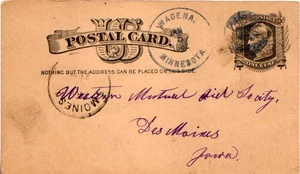 U S
POSTAL CARD.
WADENA,
JAN
MINNESOTA.
ONE CENT
NOTHING BUT THE ADDRESS CAN BE PLACED ON THIS SIDE.
MOINES
Western Mutual Aid Society,
Des Moines
Iowa.